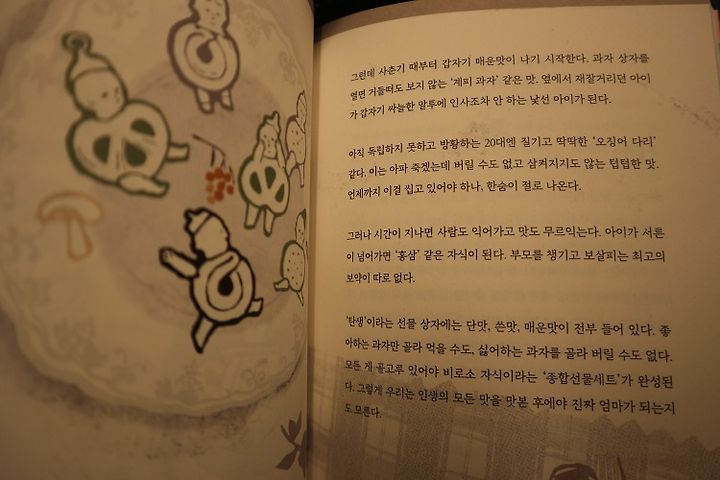 그런데 사춘기 때부터 갑자기 매운맛이 나기 시작한다. 과자 상자를
열면 거들떠도 보지 않는 '계피 과자' 같은 맛. 옆에서 재잘거리던 아이
가 갑자기 싸늘한 말투에 인사조차 안 하는 낯선 아이가 된다.
아직 독립하지 못하고 방황하는 20대엔 질기고 딱딱한 '오징어 다리'
같다. 이는 아파 죽겠는데 버릴 수도 없고 삼켜지지도 않는 텁텁한 맛.
언제까지 이걸 씹고 있어야 하나, 한숨이 절로 나온다.
그러나 시간이 지나면 사람도 익어가고 맛도 무르익는다. 아이가 서른
이 넘어가면 '홍삼' 같은 자식이 된다. 부모를 챙기고 보살피는 최고의
보약이 따로 없다.
'탄생'이라는 선물 상자에는 단맛, 쓴맛, 매운맛이 전부 들어 있다. 좋
아하는 과자만 골라 먹을 수도, 싫어하는 과자를 골라 버릴 수도 없다.
모든 게 골고루 있어야 비로소 자식이라는 '종합선물세트'가 완성된
다. 그렇게 우리는 인생의 모든 맛을 맛본 후에야 진짜 엄마가 되는지
도 모른다.